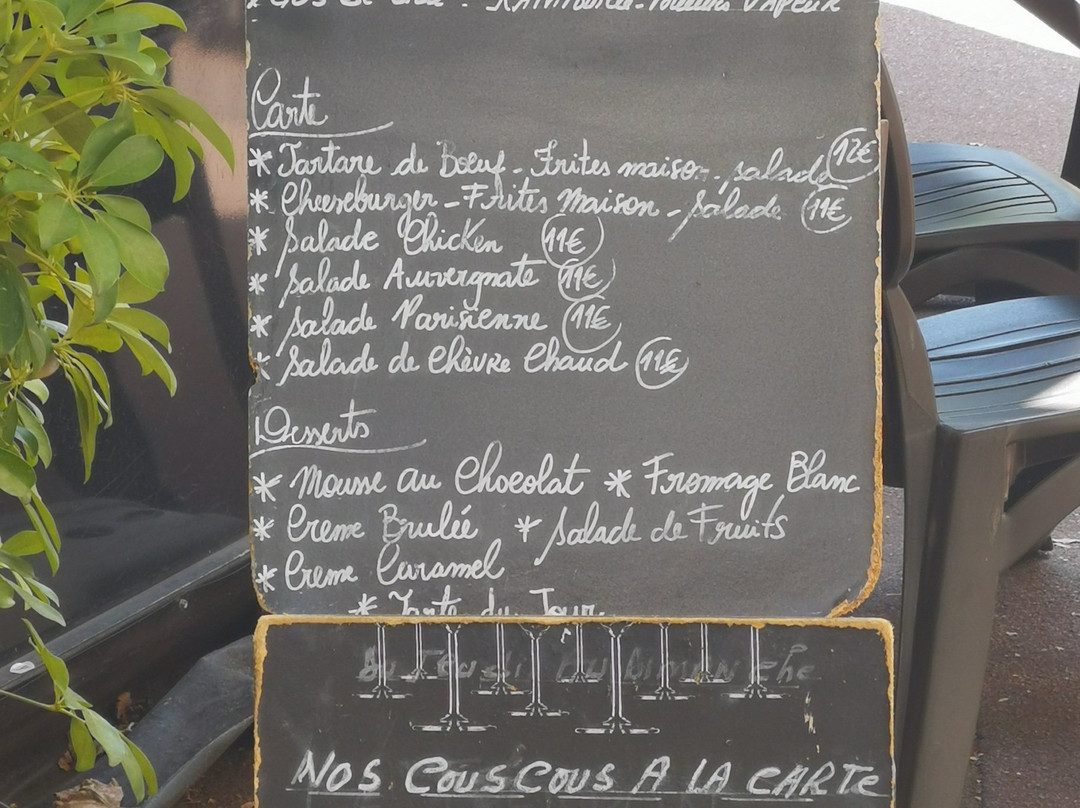 VAPEUR
Carte
* Tartare de Boeuf - Frites maison - salade 12€
* Cheeseburger - Frites Maison - salade 11€
* Salade Chicken 11€
* Salade Auvergnate 11€
* Salade Parisienne 11€
* Salade de Chèvre Chaud 11€
Desserts
* Mousse au Chocolat * Fromage Blanc
* Creme Brulée * Salade de Fruits
* Creme Caramel
* Tarte du Jour
Du Jeudi au DiMANche
NOS COUSCOUS A LA CARTe